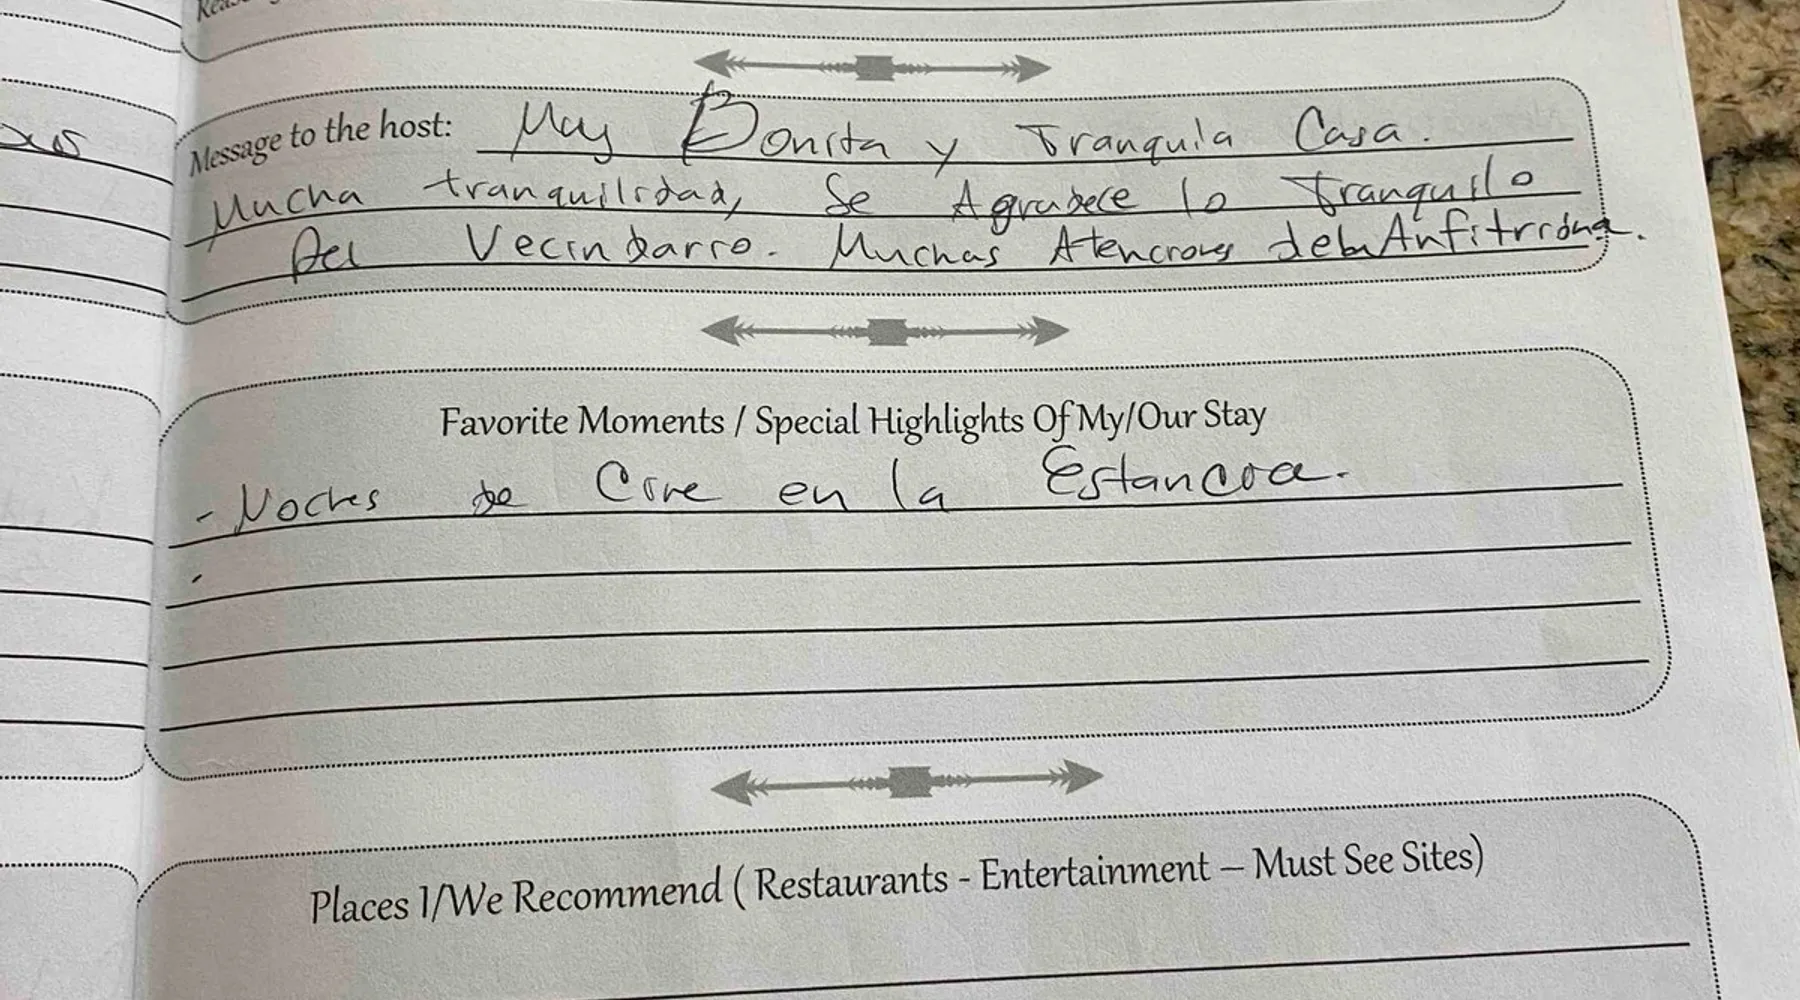 Message to the host: Muy Bonita y Tranquila Casa.
Mucha tranquilidad, Se Agradece lo Tranquilo
Del Vecindario. Muchas Atenciones de la Anfitriona.
Favorite Moments / Special Highlights Of My/Our Stay
- Noches de Cine en la Estancia.
-
Places I/We Recommend ( Restaurants - Entertainment – Must See Sites)